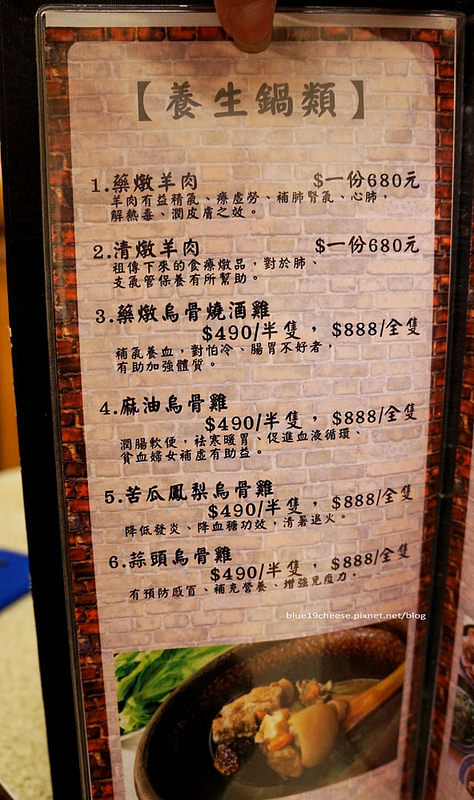 【養生鍋類】
1.藥燉羊肉 $一份680元
羊肉有益精氣、療虛勞、補肺腎氣、心肺，
解熱毒、潤皮膚之效。
2.清燉羊肉 $一份680元
祖傳下來的食療燉品，對於肺、
支氣管保養有所幫助。
3.藥燉烏骨燒酒雞
$490/半隻，$888/全隻
補氣養血，對怕冷、腸胃不好者，
有助加強體質。
4.麻油烏骨雞
$490/半隻，$888/全隻
潤腸軟便，袪寒暖胃、促進血液循環、
貧血婦女補虛有助益。
5.苦瓜鳳梨烏骨雞
$490/半隻，$888/全隻
降低發炎、降血糖功效，清暑退火。
6.蒜頭烏骨雞
$490/半隻，$888/全隻
有預防感冒、補充營養、增強免疫力。
blue19cheese.pixnet.net/blog